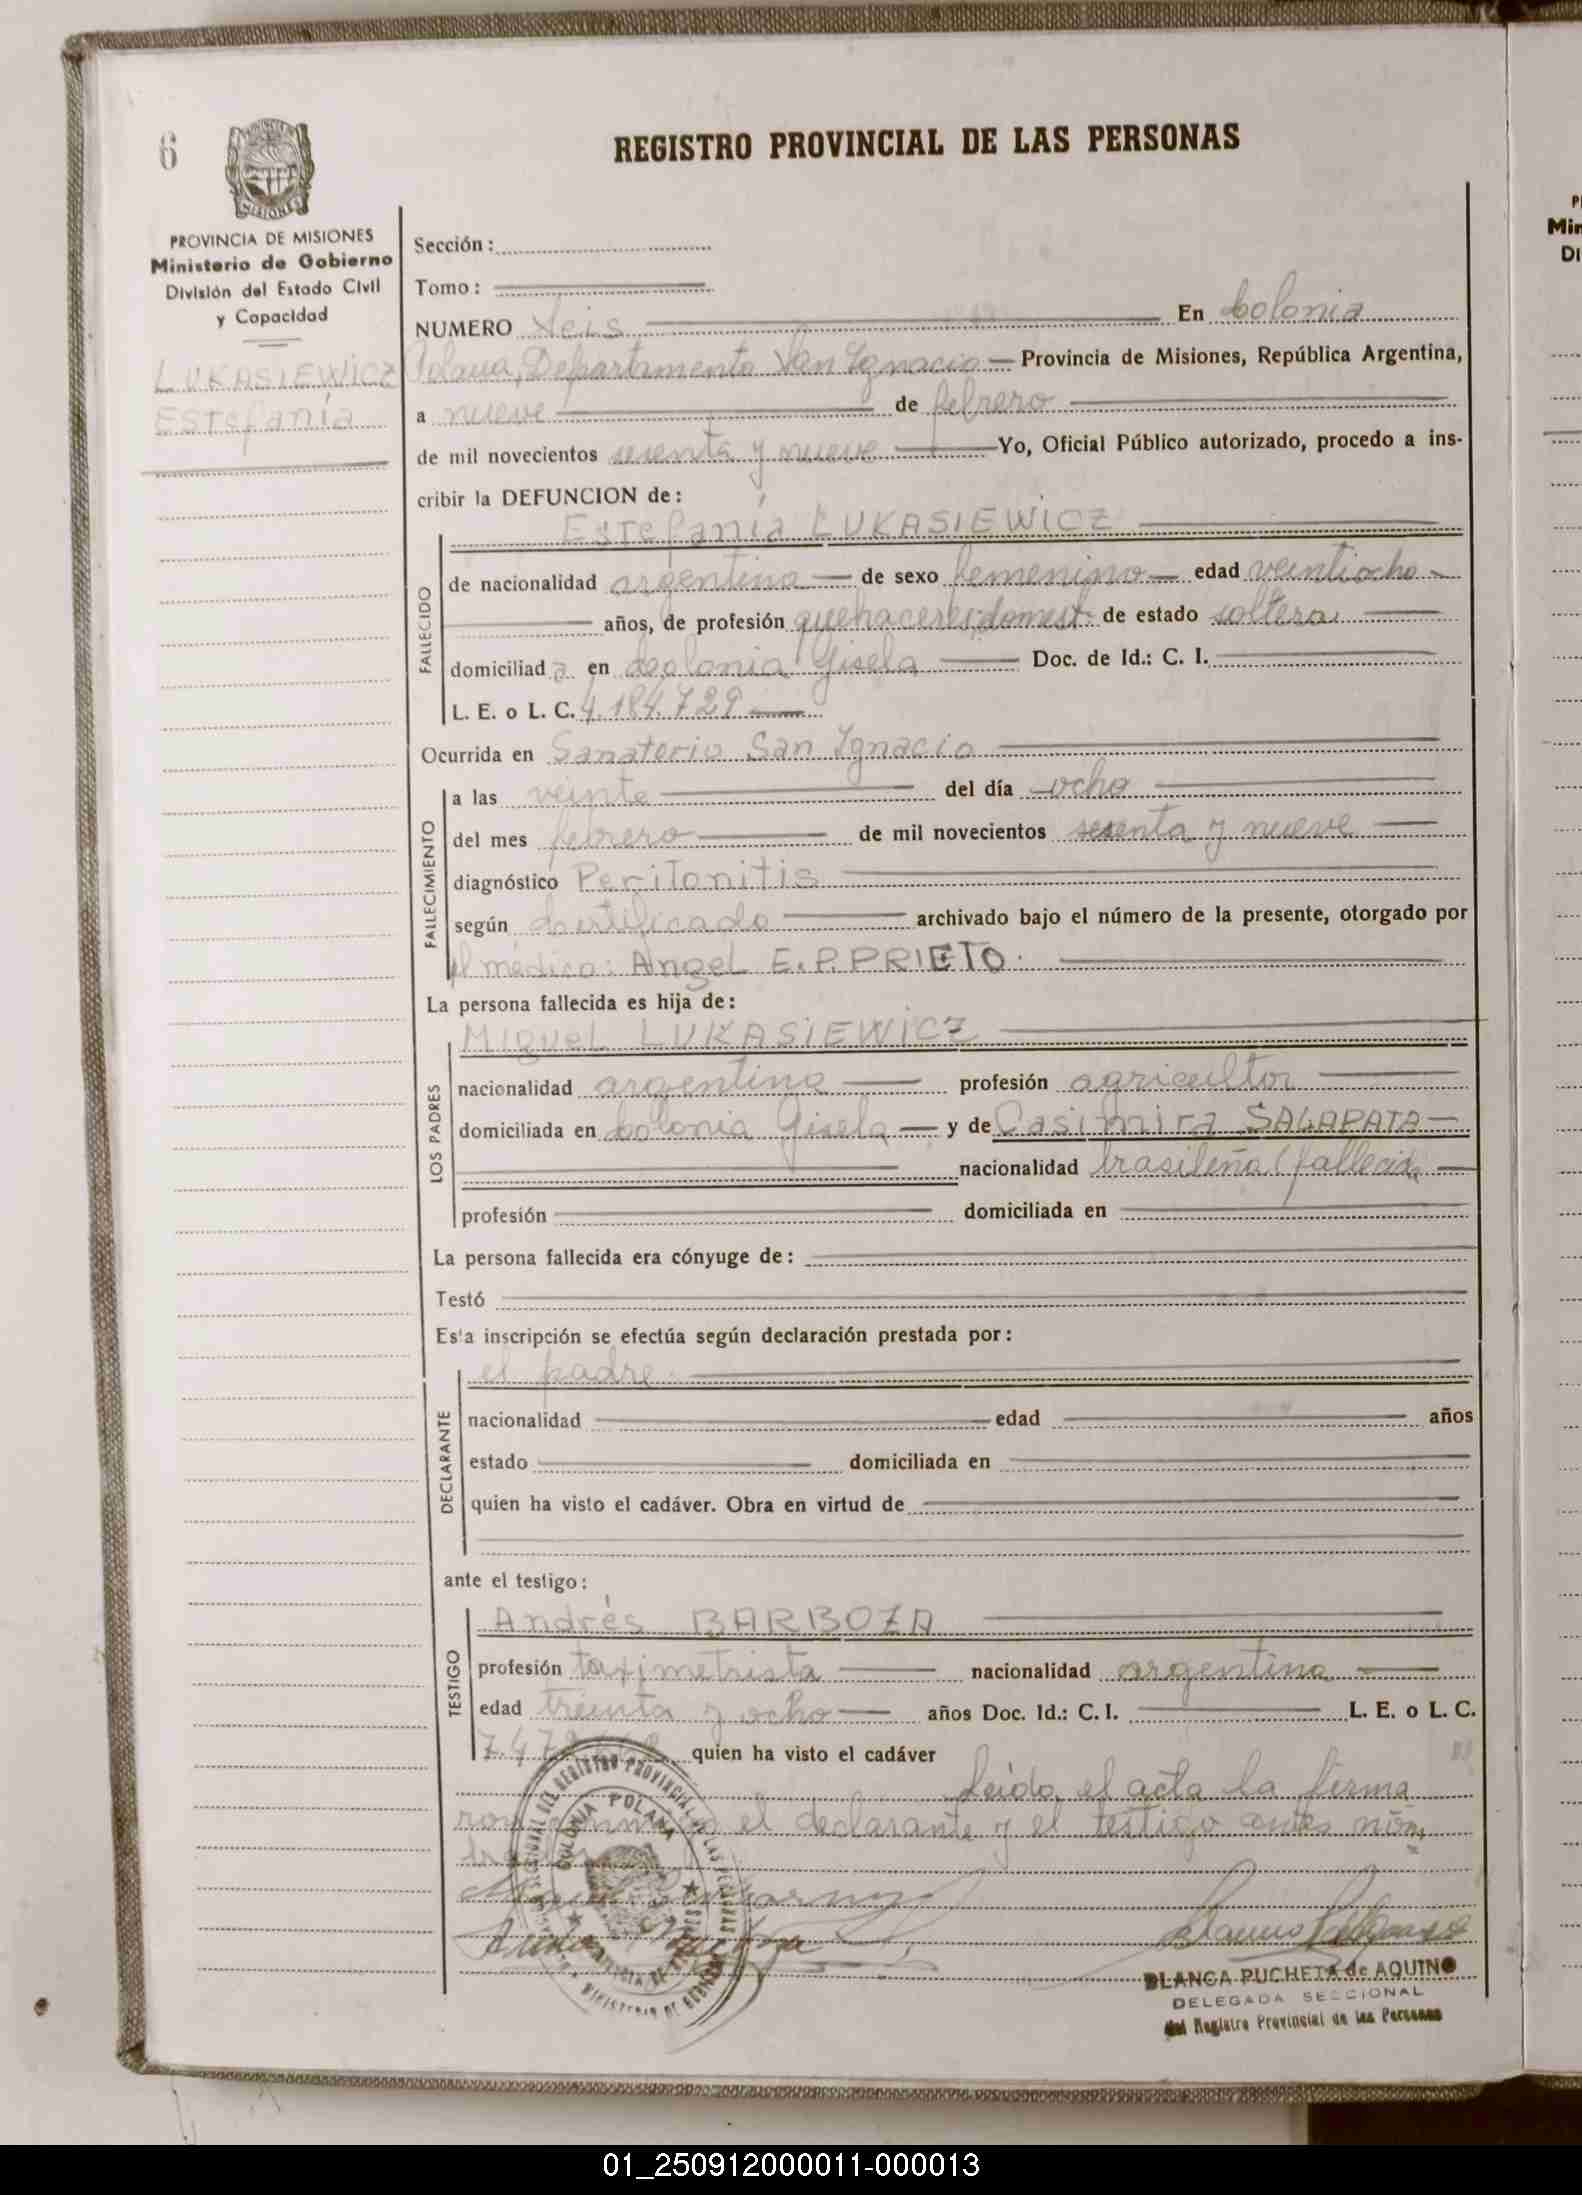 6
PROVINCIA DE MISIONES
Ministerio de Gobierno
División del Estado Civil
y Capacidad
LUKASIEWICZ
Estefanía
REGISTRO PROVINCIAL DE LAS PERSONAS
Sección:
Tomo:
NUMERO Seis En Colonia
Polana, Departamento San Ignacio Provincia de Misiones, República Argentina,
a nueve de febrero
de mil novecientos sesenta y nueve Yo, Oficial Público autorizado, procedo a ins-
cribir la DEFUNCION de:
Estefanía LUKASIEWICZ
FALLECIDO
de nacionalidad argentina de sexo femenino edad veintiocho
años, de profesión quehaceres domest. de estado soltera
domiciliad a en Colonia Gisela Doc. de Id.: C. I.
L. E. o L. C. 4.184.729
Ocurrida en Sanatorio San Ignacio
FALLECIMIENTO
a las veinte del día ocho
del mes febrero de mil novecientos sesenta y nueve
diagnóstico Peritonitis
según Certificado archivado bajo el número de la presente, otorgado por
el médico: Angel E. P. PRIETO.
La persona fallecida es hija de:
LOS PADRES
Miguel LUKASIEWICZ
nacionalidad argentina profesión agricultor
domiciliada en Colonia Gisela y de Casimira SALAPATA
nacionalidad brasileña (fallecida
profesión domiciliada en
La persona fallecida era cónyuge de:
Testó
Esta inscripción se efectúa según declaración prestada por:
DECLARANTE
el padre.
nacionalidad edad años
estado domiciliada en
quien ha visto el cadáver. Obra en virtud de
ante el testigo:
TESTIGO
Andrés BARBOZA
profesión taximetrista nacionalidad argentina
edad treinta y ocho años Doc. Id.: C. I. L. E. o L. C.
quien ha visto el cadáver
Leída el acta la firma
el declarante y el testigo antes nom
COLONIA POLANA
BLANCA PUCHETA de AQUINO
DELEGADA SECCIONAL
del Registro Provincial de las Personas
P
Min
Di
01_250912000011-000013